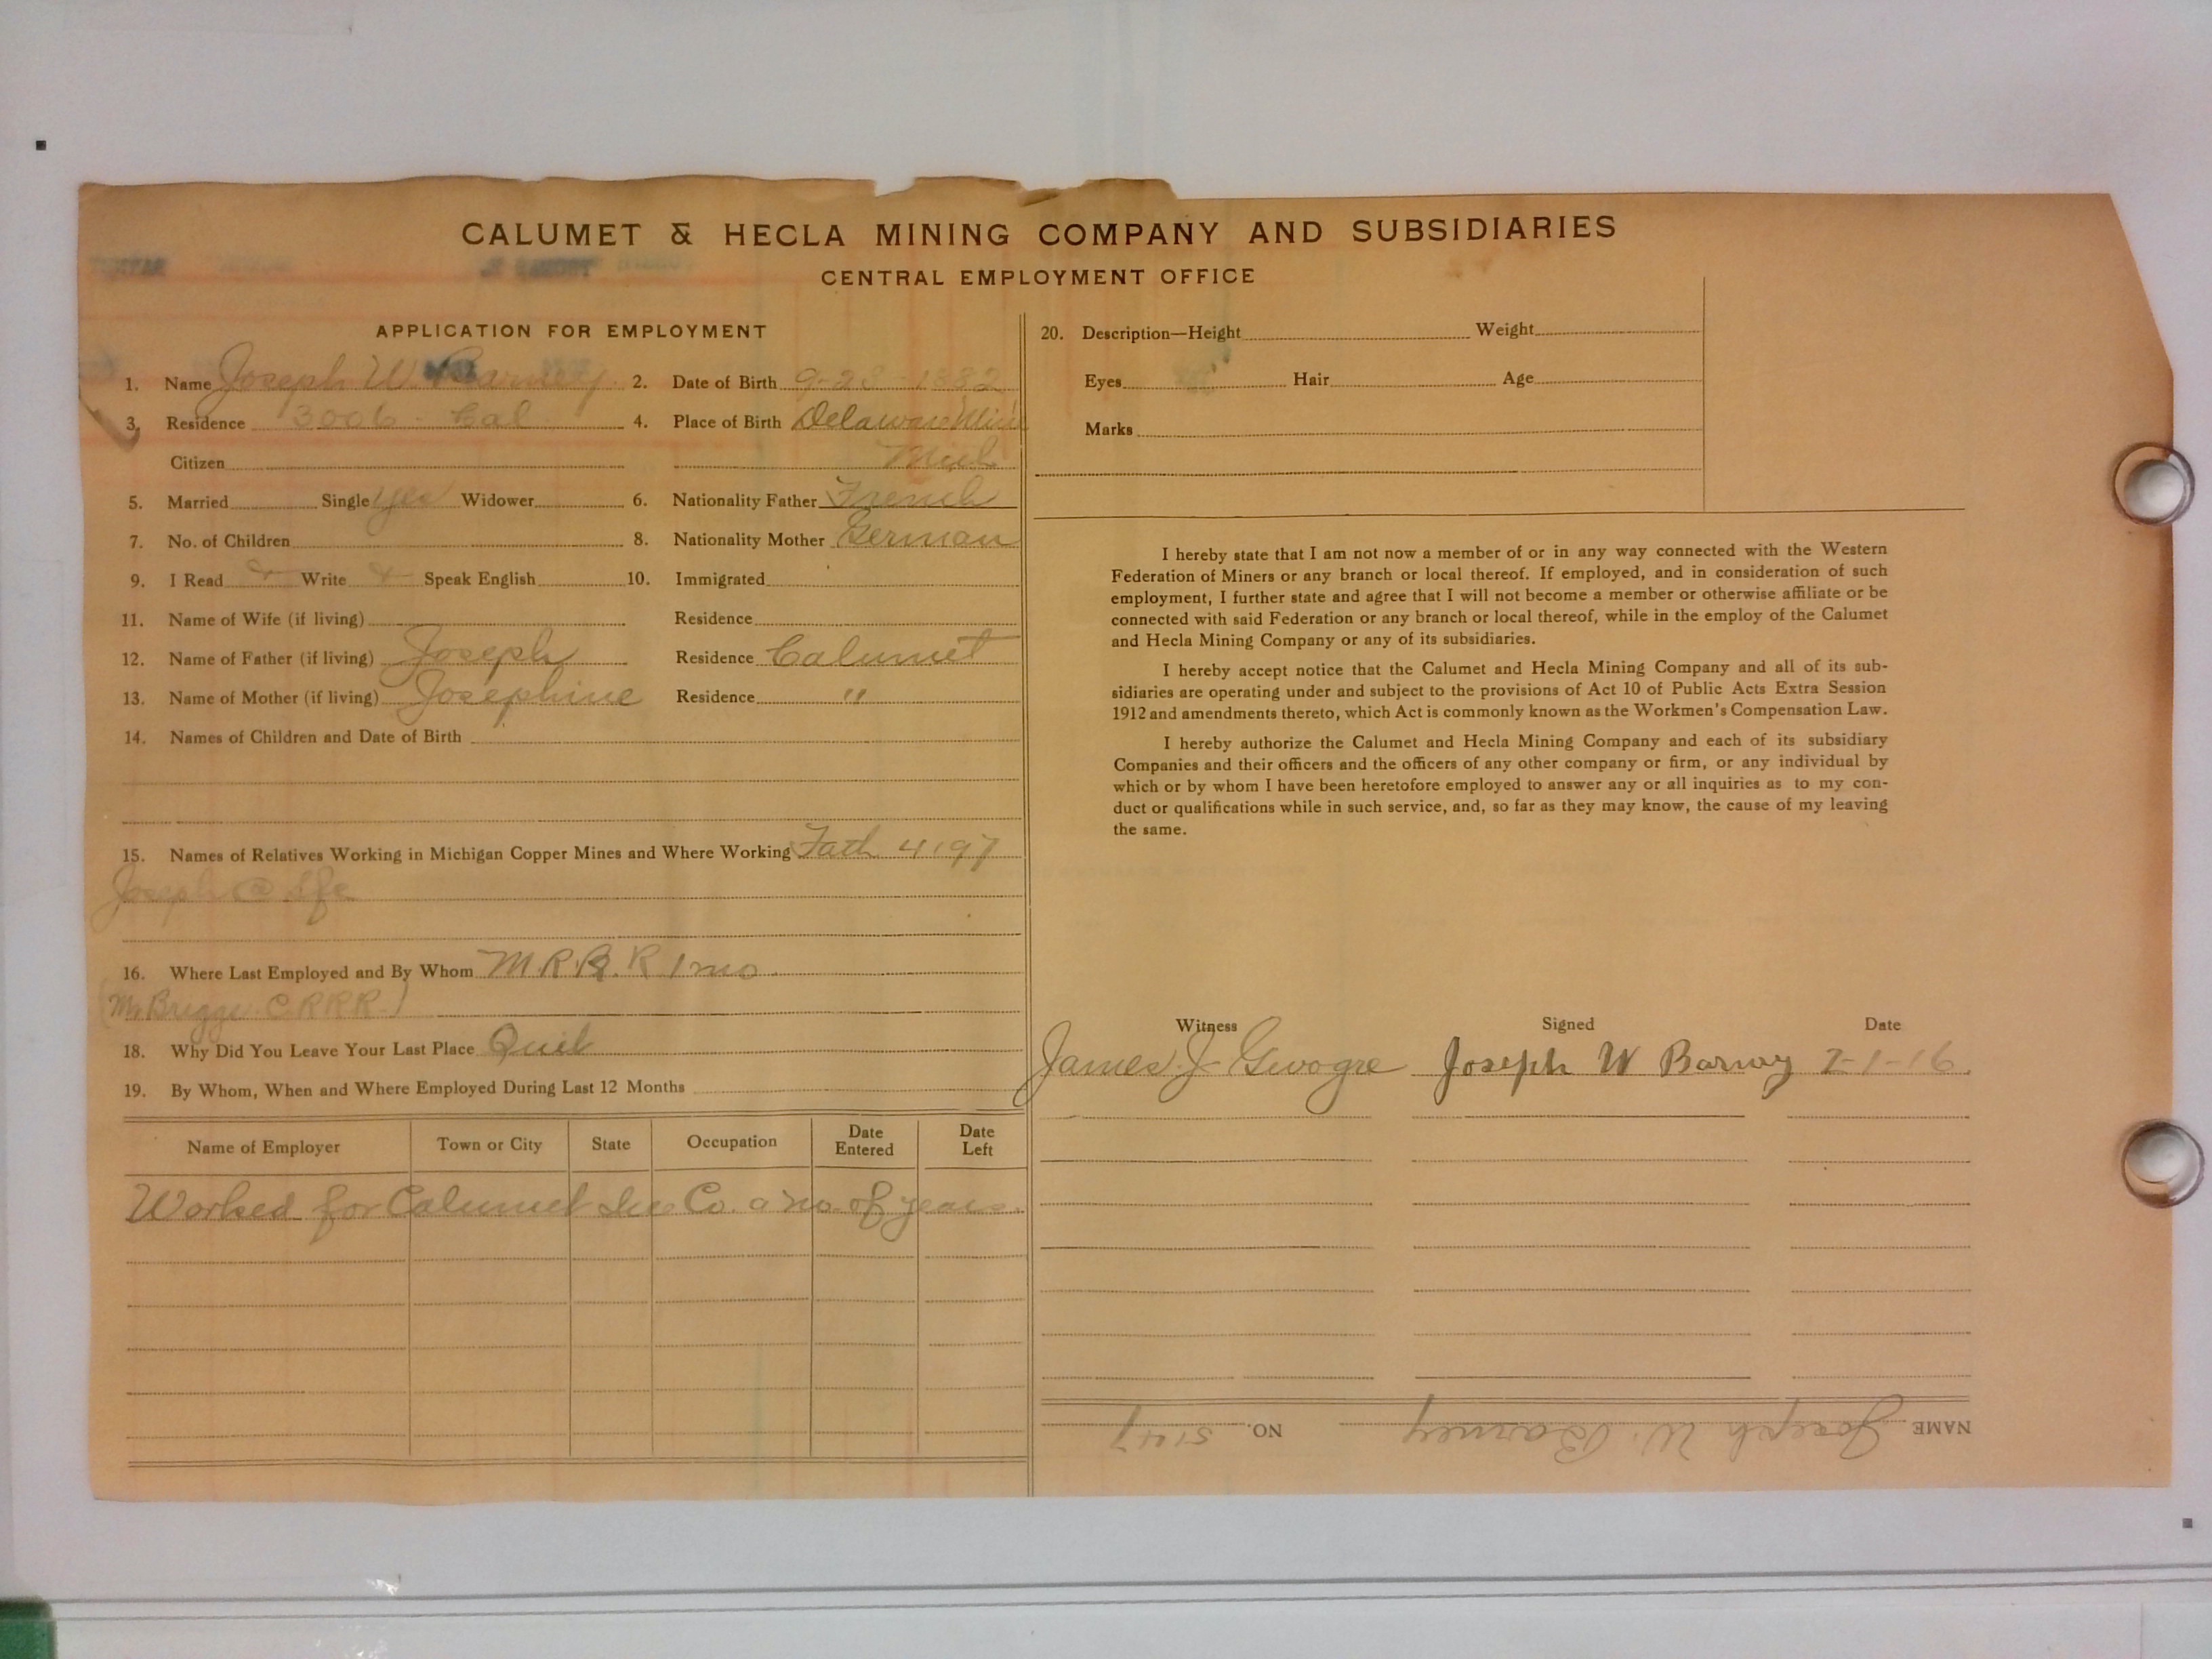 CALUMET & HECLA MINING COMPANY AND SUBSIDIARIES
CENTRAL EMPLOYMENT OFFICE
APPLICATION FOR EMPLOYMENT
1. Name Joseph W. Barney 2. Date of Birth 9-28-1882
3. Residence 3006 - Cal. 4. Place of Birth Delaware Mine
Citizen Mich
5. Married Single yes Widower 6. Nationality Father French
7. No. of Children 8. Nationality Mother German
9. I Read Write Speak English 10. Immigrated
11. Name of Wife (if living) Residence
12. Name of Father (if living) Joseph Residence Calumet
13. Name of Mother (if living) Josephine Residence "
14. Names of Children and Date of Birth
15. Names of Relatives Working in Michigan Copper Mines and Where Working Fath 4197
Joseph @
16. Where Last Employed and By Whom M.R.R.R 1 mo
(Mr Briggs C.R.R.R.)
18. Why Did You Leave Your Last Place Quit
19. By Whom, When and Where Employed During Last 12 Months
Name of Employer Town or City State Occupation Date Entered Date Left
Worked for Calumet Ice Co. a no. of years.
20. Description—Height Weight
Eyes Hair Age
Marks
I hereby state that I am not now a member of or in any way connected with the Western
Federation of Miners or any branch or local thereof. If employed, and in consideration of such
employment, I further state and agree that I will not become a member or otherwise affiliate or be
connected with said Federation or any branch or local thereof, while in the employ of the Calumet
and Hecla Mining Company or any of its subsidiaries.
I hereby accept notice that the Calumet and Hecla Mining Company and all of its sub-
sidiaries are operating under and subject to the provisions of Act 10 of Public Acts Extra Session
1912 and amendments thereto, which Act is commonly known as the Workmen's Compensation Law.
I hereby authorize the Calumet and Hecla Mining Company and each of its subsidiary
Companies and their officers and the officers of any other company or firm, or any individual by
which or by whom I have been heretofore employed to answer any or all inquiries as to my con-
duct or qualifications while in such service, and, so far as they may know, the cause of my leaving
the same.
Witness Signed Date
James J. Joseph W Barney 2-1-16
NAME Joseph W. Barney NO. 5147